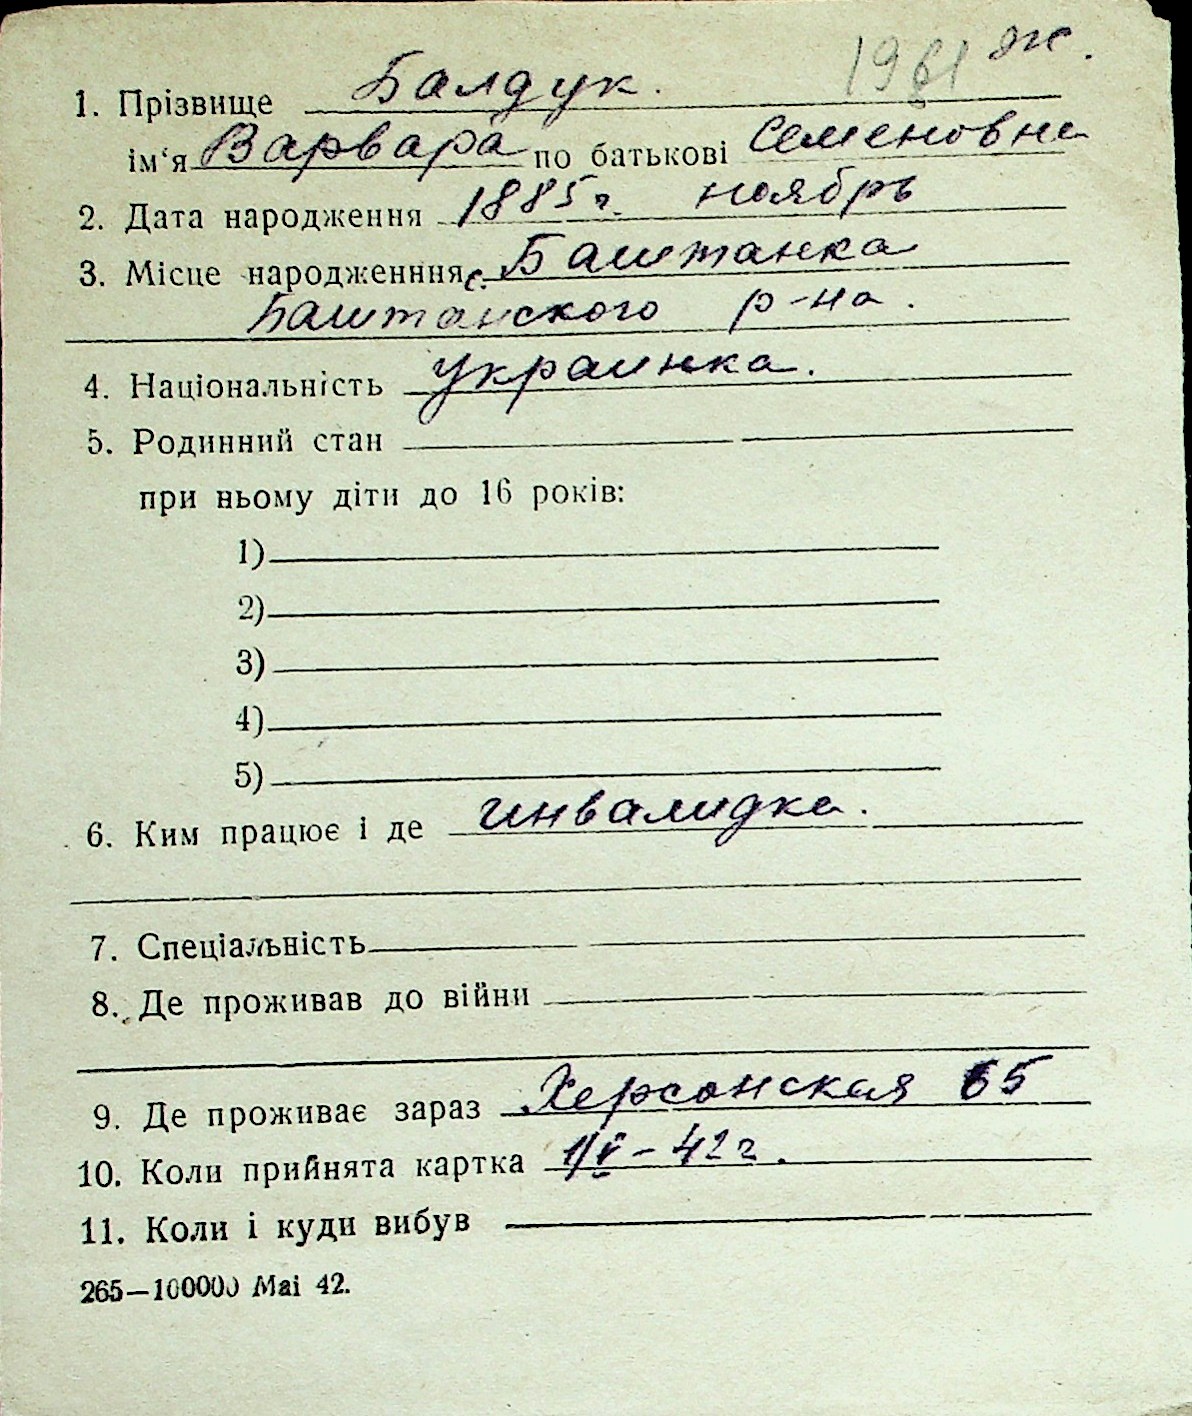 1961 ж.
1. Прізвище Балдук.
ім‘я Варвара по батькові Семеновна
2. Дата народження 1885 г. ноябрь
3. Місце народженння с. Баштанка
Баштанского р-на.
4. Національність украинка.
5. Родинний стан
при ньому діти до 16 років:
1)
2)
3)
4)
5)
6. Ким працює і де инвалидка.
7. Спеціальність
8. Де проживав до війни
9. Де проживає зараз Херсонская 65
10. Коли прийнята картка 1/V-42 г.
11. Коли і куди вибув
265—100000 Mai 42.